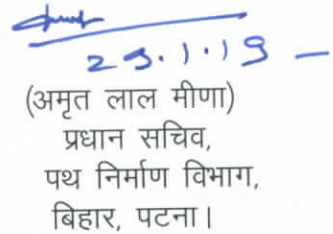 23.1.19
(अमृत लाल मीणा)
प्रधान सचिव,
पथ निर्माण विभाग,
बिहार, पटना।